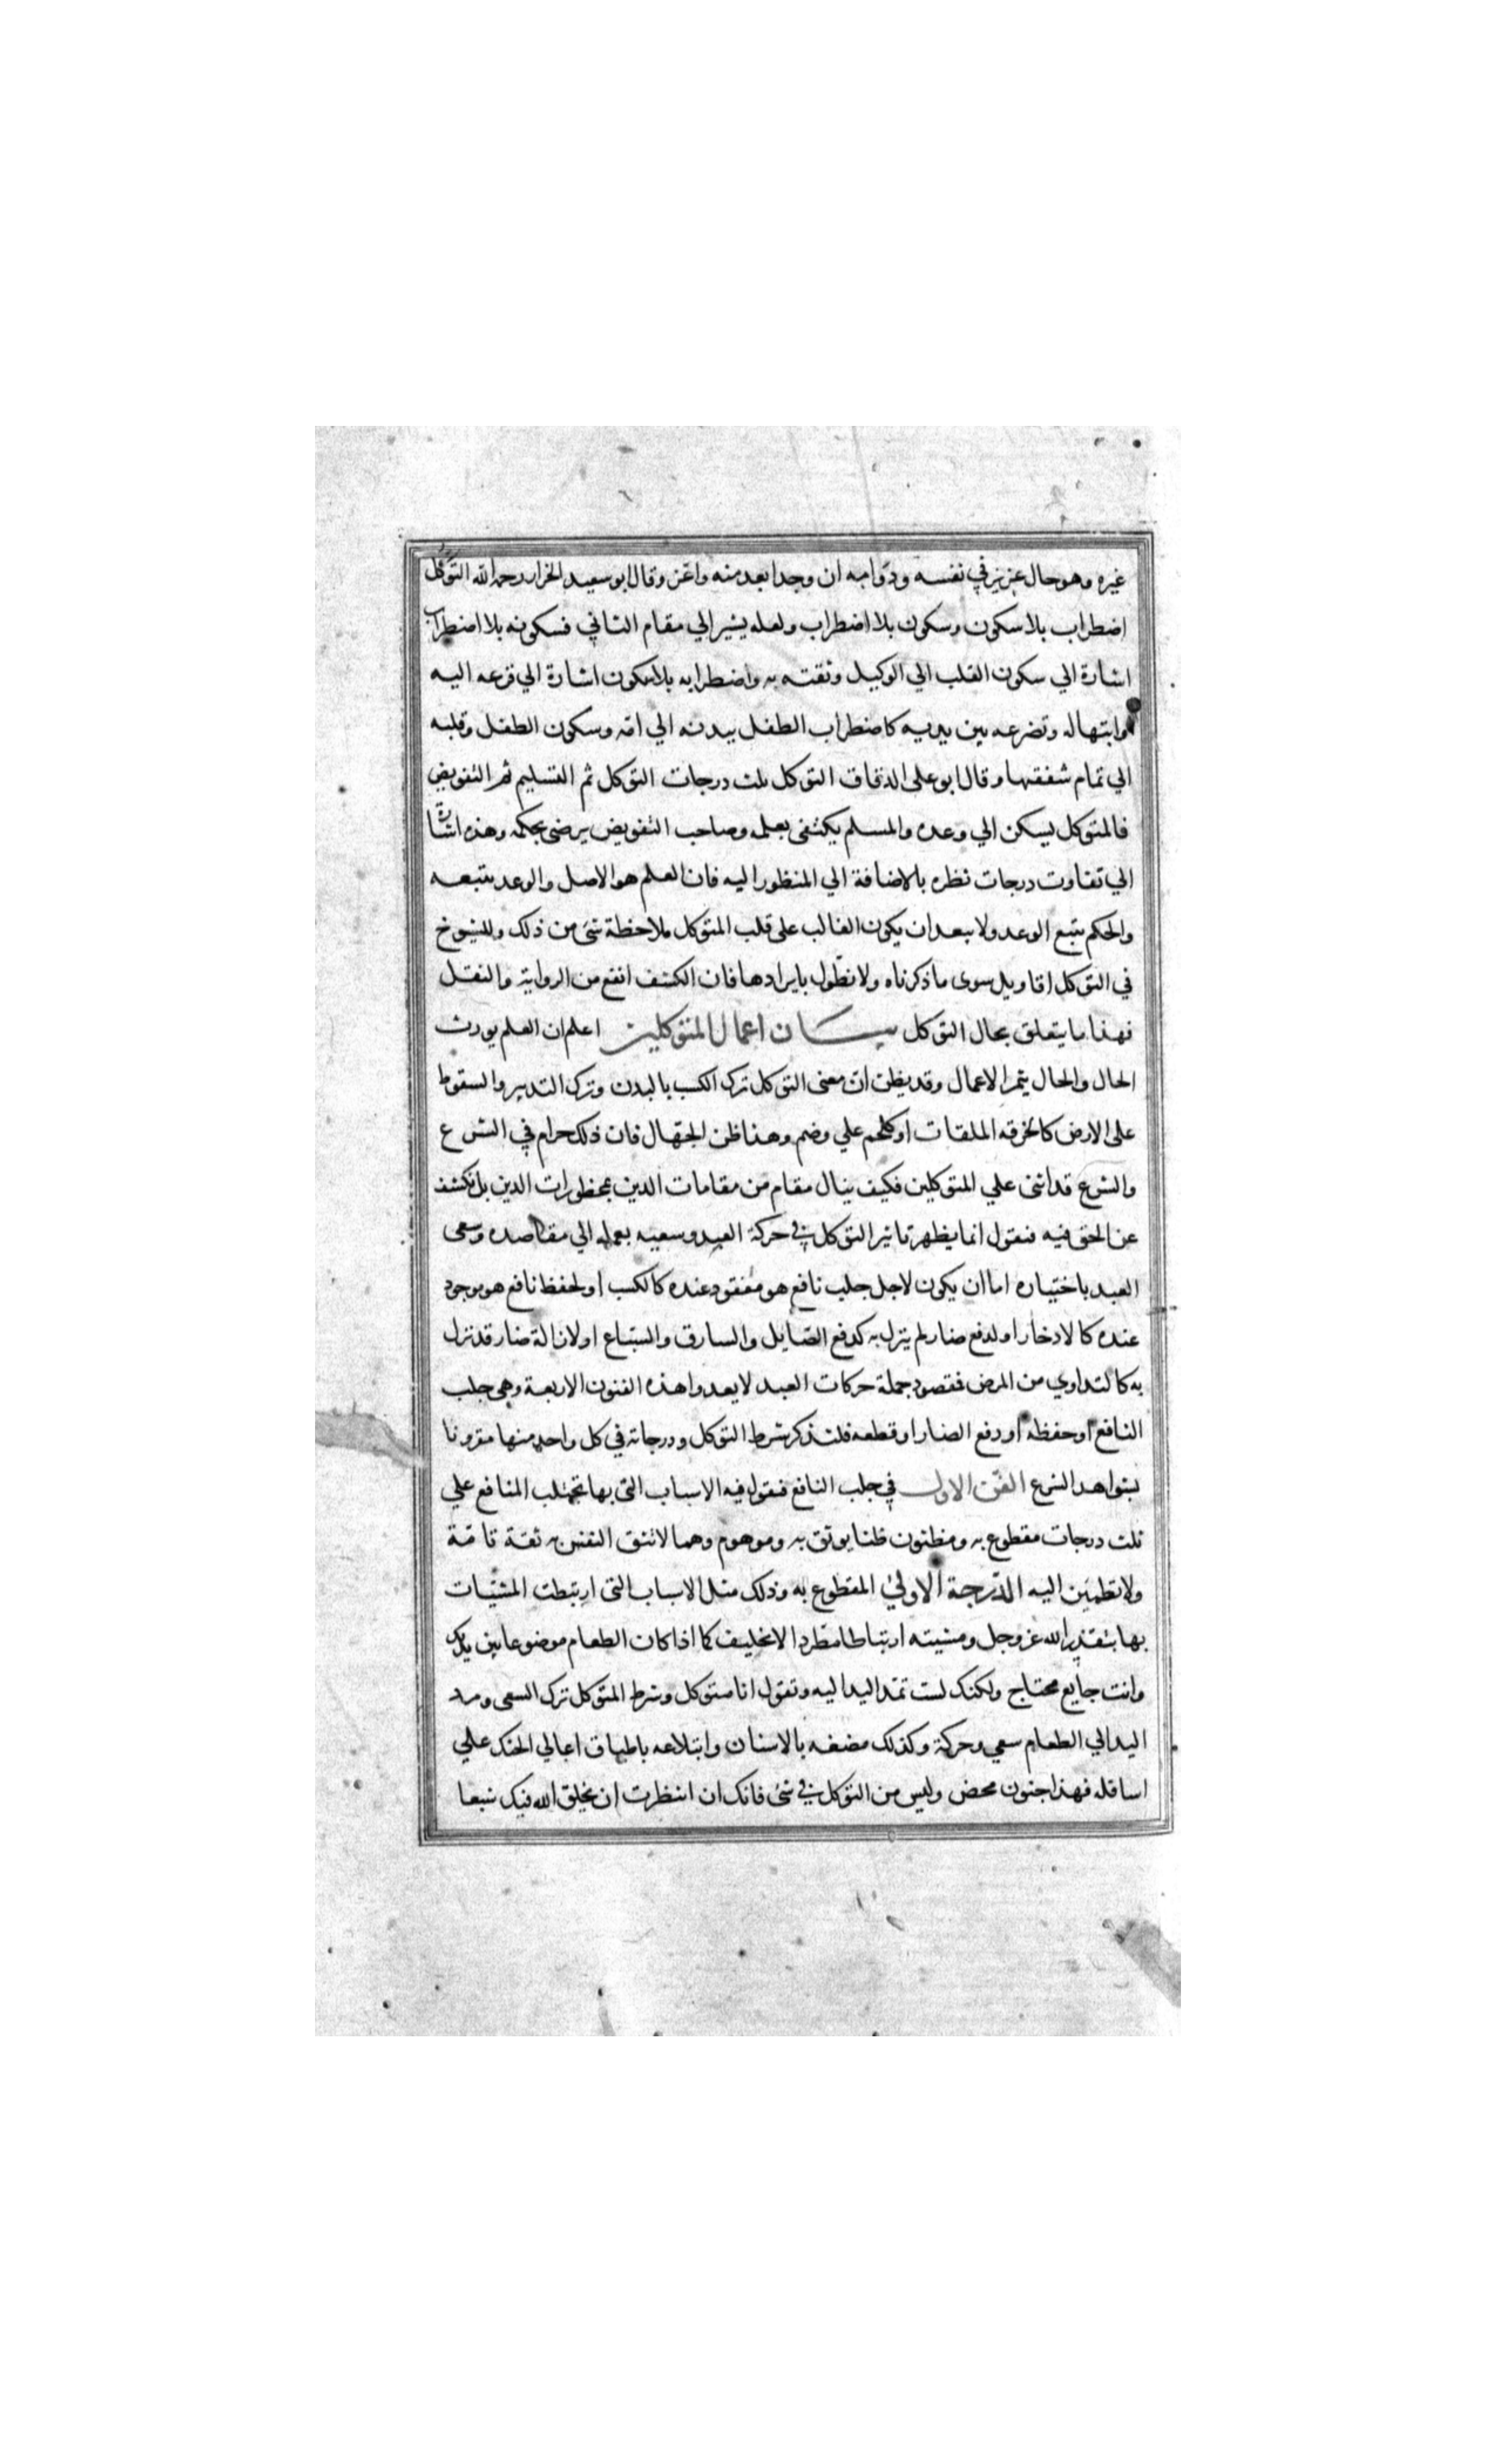 غيره وهو حال عزيز في نفسه ودوامه ان وجد ابعد منه واعز وقال ابو سعيد الخراز رحمه الله التوكل
اضطراب بلا سكون وسكون بلا اضطراب ولعله يشير الي مقام الثاني فسكونه بلا اضطراب
اشارة الي سكون القلب الي الوكيل وثقته به واضطرابه بلا سكون اشارة الي فزعه اليه
وابتهاله وتضرعه بين يديه كاضطراب الطفل بيدنه الي امه وسكون الطفل وقلبه
الي تمام شفقتها وقال ابو علي الدقاق التوكل ثلث درجات التوكل ثم التسليم ثم التفويض
فالمتوكل يسكن الي وعده والمسلم يكتفي بعلمه وصاحب التفويض يرضي بحكمه وهذه اشارة
الي تفاوت درجات نظره بالاضافة الي المنظور اليه فان العلم هو الاصل والوعد يتبعه
والحكم يتبع الوعد ولا يبعد ان يكون الغالب علي قلب المتوكل ملاحظة شئ من ذلك وللشيوخ
في التوكل اقاويل سوي ما ذكرناه ولا نطول بايرادها فان الكشف انفع من الرواية والنقل
فهذا ما يتعلق بحال التوكل بيان اعمال المتوكلين اعلم ان العلم يورث
الحال والحال يثمر الاعمال وقد يظن ان معني التوكل ترك الكسب بالبدن وترك التدبير والسقوط
علي الارض كالخرقه الملقات او كلحم علي وضم وهذا ظن الجهال فان ذلك حرام في الشرع
والشرع قد اثني علي المتوكلين فكيف ينال مقام من مقامات الدين بمحظورات الدين بل نكشف
عن الحق فيه فنقول انما يظهر تاثير التوكل في حركة العبد وسعيه بعمله الي مقاصده وسعي
العبد باختياره اما ان يكون لاجل جلب نافع هو مفقود عنده كالكسب او لحفظ نافع هو موجود
عنده كالادخار او لدفع ضار لم ينزل به كدفع الصّايل والسارق والسّباع او لازالة ضار قد نزل
به كالتداوي من المرض فمقصود جملة حركات العبد لا يعدوا هذه الفنون الاربعة وهي جلب
النافع او حفظه او دفع الضار او قطعه فلنذكر شرط التوكل ودرجاته في كل واحد منها مقرونا
بشواهد الشرع الفن الاول في جلب النافع فنقول فيه الاسباب التي بها تجتلب المنافع علي
ثلث درجات مقطوع به ومظنون ظنا يوثق به وموهوم وهما لا تثق النفس به ثقة تامة
ولا تطمئن اليه الدّرجة الاولي المقطوع به وذلك مثل الاسباب التي ارتبطت المسببات
بها بتقدير الله عز وجل ومشيته ارتباطا مطردا لا يختلف كما اذا كان الطعام موضوعا بين يديك
وانت جايع محتاج ولكنك لست تمد اليد اليه وتقول انا متوكل وشرط المتوكل ترك السعي ومد
اليد الي الطعام سعي وحركة وكذلك مضغه بالاسنان وابتلاعه باطباق اعالي الحنك علي
اسافله فهذا جنون محض وليس من التوكل في شئ فانك ان انتظرت ان يخلق الله فيك شبعا